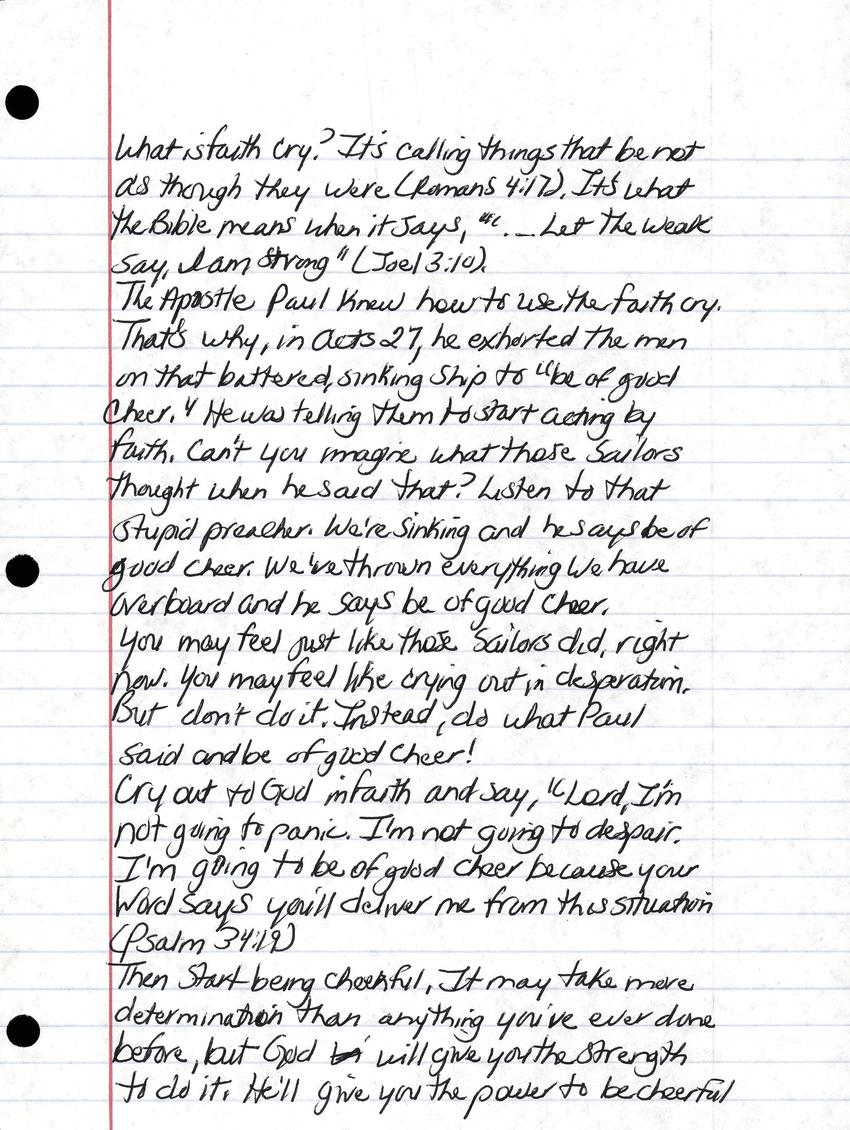 What is faith cry? It's calling things that be not
as though they were (Romans 4:17). It's what
the Bible means when it says, "... Let the weak
say, I am strong" (Joel 3:10).
The Apostle Paul knew how to use the faith cry.
That's why, in Acts 27, he exhorted the men
on that battered, sinking ship to "be of good
cheer." He was telling them to start acting by
faith. Can't you imagine what those sailors
thought when he said that? Listen to that
stupid preacher. We're sinking and he says be of
good cheer. We've thrown everything we have
overboard and he says be of good cheer.
You may feel just like those sailors did, right
now. You may feel like crying out in desperation.
But don't do it. Instead, do what Paul
said and be of good cheer!
Cry out to God in faith and say, "Lord, I'm
not going to panic. I'm not going to despair.
I'm going to be of good cheer because your
Word says you'll deliver me from this situation
(Psalm 34:19)
Then start being cheerful, It may take more
determination than anything you've ever done
before, but God will give you the strength
to do it. He'll give you the power to be cheerful